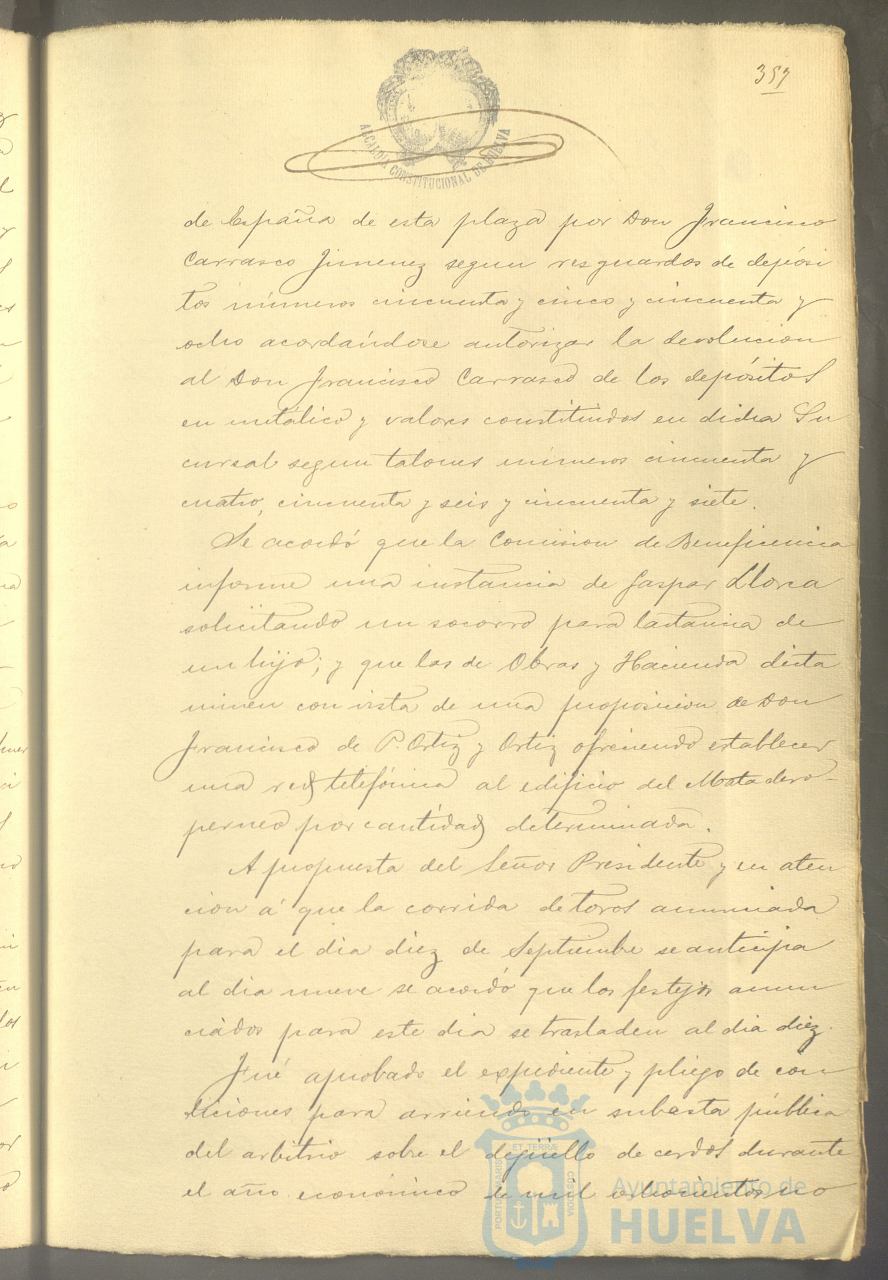 ALCALDIA CONSTITUCIONAL DE HUELVA
de España de esta plaza por Don Francisco
Carrasco Jimenez segun resguardos de depósi
tos números cincuenta y cinco y cincuenta y
ocho acordándose autorizar la devolucion
al Don Francisco Carrasco de los depósitos
en metálico y valores constituidos en dicha Su
cursal segun talones números cincuenta y
cuatro, cincuenta y seis y cincuenta y siete.
Se acordó que la Comision de Beneficencia
informe una instancia de Gaspar Llorca
solicitando un socorro para lactancia de
un hijo; y que las de Obras y Hacienda dicta
minen con vista de una proposicion de Don
Francisco de P. Ortiz y Ortiz ofreciendo establecer
una red telefónica al edificio del Matadero
perneo por cantidad determinada.
A propuesta del Señor Presidente y en aten
cion á que la corrida de toros anunciada
para el dia diez de Septiembre se anticipa
al dia nueve se acordó que los festejos anun
ciados para este dia se trasladen al dia diez.
Fué aprobado el expediente y pliego de con
diciones para arriendo en subasta pública
del arbitrio sobre el degüello de cerdos durante
el año económico de mil ochocientos no
Ayuntamiento de
HUELVA